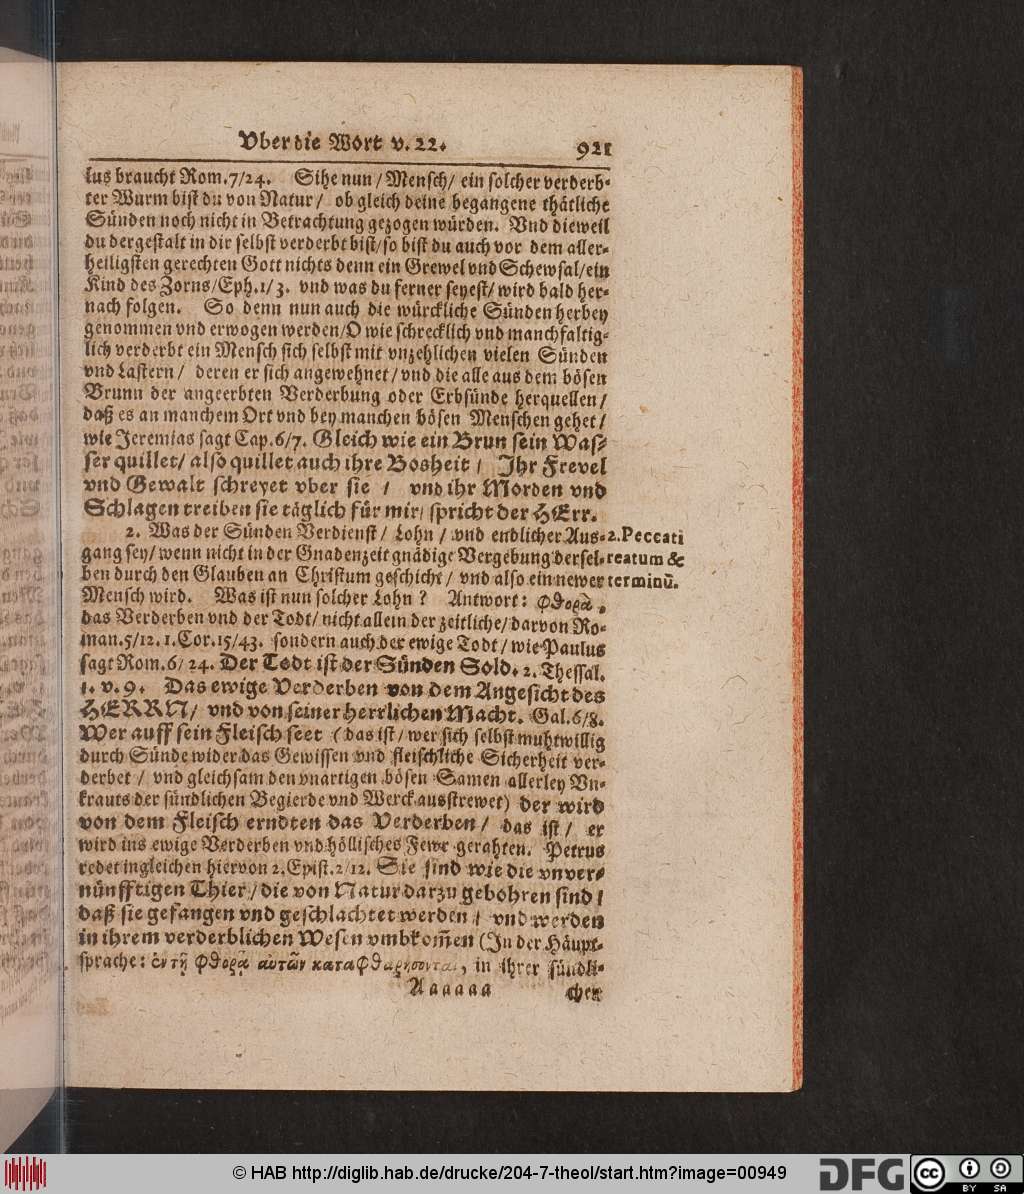 Vber die Wort v. 22.
921
lus braucht Rom. 7/24. Sihe nun / Mensch / ein solcher verderb-
ter Wurm bist du von Natur / ob gleich deine begangene thätliche
Sünden noch nicht in Betrachtung gezogen würden. Vnd dieweil
du dergestalt in dir selbst verderbt bist / so bist du auch vor dem aller-
heiligsten gerechten Gott nichts denn ein Grewel vnd Schewsal / ein
Kind des Zorns / Eph. 1/ 3. vnd was du ferner seyest / wird bald her-
nach folgen. So denn nun auch die würckliche Sünden herbey
genommen vnd erwogen werden / O wie schrecklich vnd manchfaltig-
lich verderbt ein Mensch sich selbst mit vnzehlichen vielen Sünden
vnd Lastern / deren er sich angewehnet / vnd die alle aus dem bösen
Brunn der angeerbten Verderbung oder Erbsünde herquellen /
daß es an manchem Ort vnd bey manchen bösen Menschen gehet /
wie Jeremias sagt Cap. 6/7. Gleich wie ein Brun sein Was-
ser quillet / also quillet auch ihre Bosheit / Ihr Frevel
vnd Gewalt schreyet vber sie / vnd ihr Morden vnd
Schlagen treiben sie täglich für mir / spricht der HErr.
2. Was der Sünden Verdienst / Lohn / vnd endlicher Aus-
gang sey / wenn nicht in der Gnadenzeit gnädige Vergebung dersel-
ben durch den Glauben an Christum geschicht / vnd also ein newer
Mensch wird. Was ist nun solcher Lohn ? Antwort : φθορὰ,
das Verderben vnd der Todt / nicht allein der zeitliche / darvon Ro-
man. 5/12. 1. Cor. 15/43. sondern auch der ewige Todt / wie Paulus
sagt Rom. 6/ 24. Der Todt ist der Sünden Sold. 2. Thessal.
1. v. 9. Das ewige Verderben von dem Angesicht des
HERRN / vnd von seiner herrlichen Macht. Gal. 6/8.
Wer auff sein Fleisch seet ( das ist / wer sich selbst muhtwillig
durch Sünde wider das Gewissen vnd fleischliche Sicherheit ver-
derbet / vnd gleichsam den vnartigen bösen Samen allerley Vn-
krauts der sündlichen Begierde vnd Werck ausstrewet) der wird
von dem Fleisch erndten das Verderben / das ist / er
wird ins ewige Verderben vnd höllisches Fewr gerahten. Petrus
redet ingleichen hiervon 2. Epist. 2/12. Sie sind wie die vnver-
nünfftigen Thier / die von Natur darzu gebohren sind /
daß sie gefangen vnd geschlachtet werden / vnd werden
in ihrem verderblichen Wesen vmbkom̃en (In der Häupt-
sprache : ἐν τῇ φθορᾷ αὐτῶν καταφθαρήσονται, in ihrer sündli-
Aaaaaa
chen
2. Peccati
reatum &
terminū.
© HAB http://diglib.hab.de/drucke/204-7-theol/start.htm?image=00949
DFG
cc
BY SA